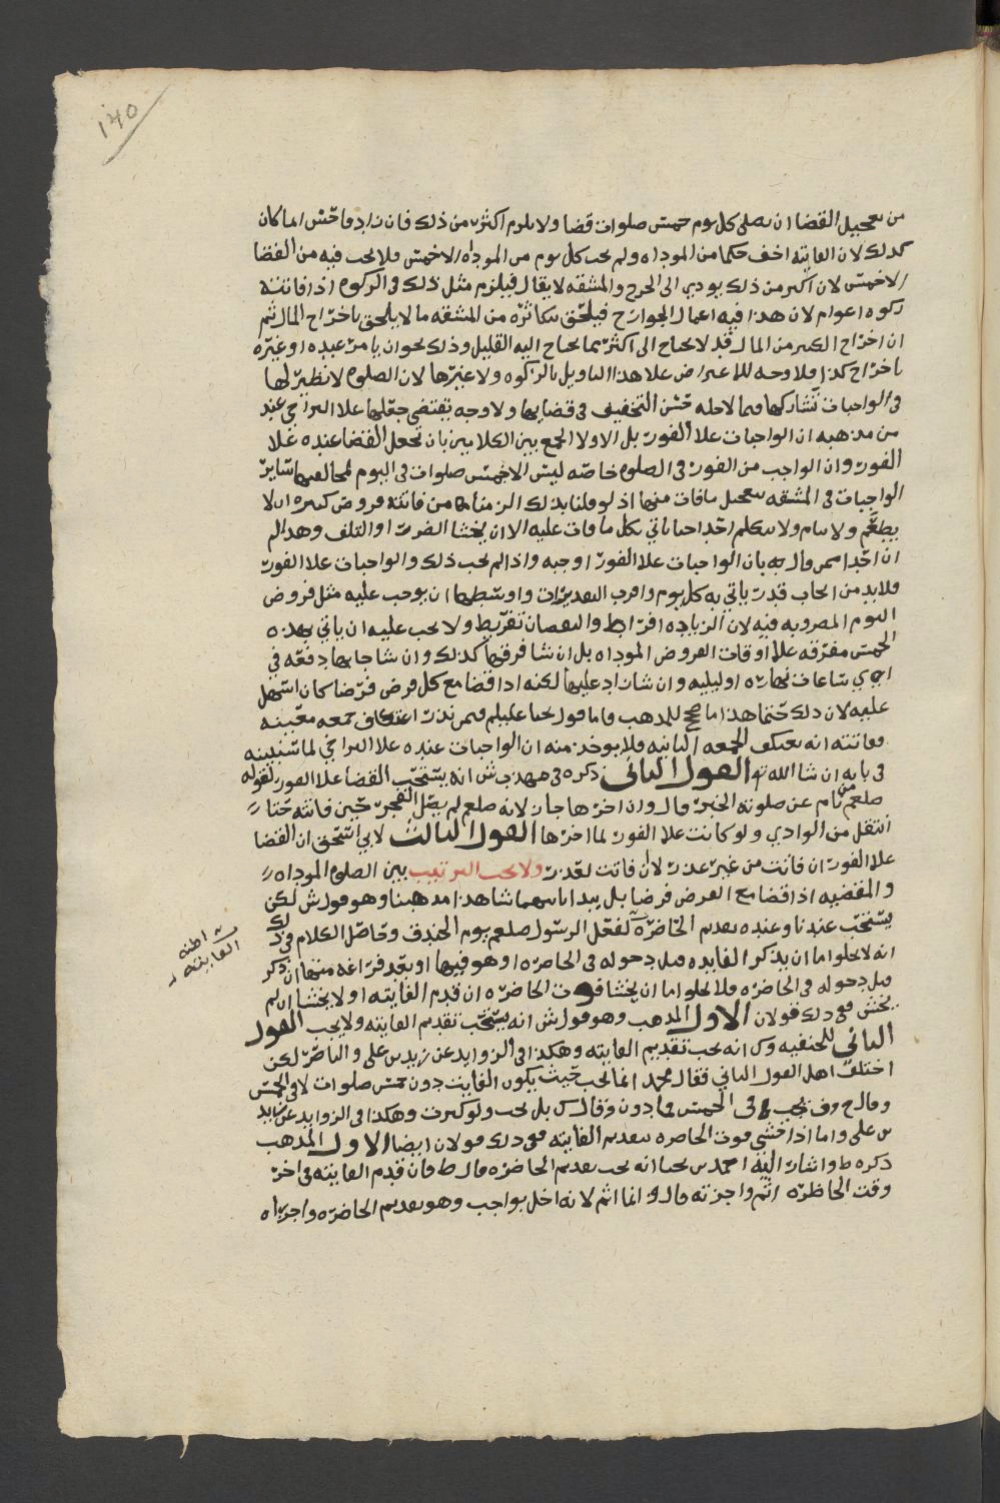 ١٢٥
من تعجيل القضا ان يصلي كل يوم خمس صلوات قضا ولا يلزم اكثر من ذلك فان زاد فاحسن انما كان
كذلك لان الفايته اخف حكما من الموداه ولم يجب كل يوم من الموداه الا خمس فلا يجب فيه من القضا
الا خمس لان اكثر من ذلك يودي الى الحرج والمشقه لا يقال فيلزم مثل ذلك في الزكوه اذا فاتته
زكوه اعوام لان هذا فيه اعمال الجوارح فيلحق بكاثره من المشقه ما لا يلحق باخراج المال ثم
ان اخراج الكثير من المال قد لا يحتاج الى اكثر مما يحتاج اليه القليل وذلك نحو ان يامر عبده او غيره
باخراج كذا فلا وجه للاعتراض علا هذا التاويل بالزكوه ولا غيرها لان الصلوه لا نظير لها
في الواجبات تشاركها فيما لاجله حسن التخفيف في قضايها ولا وجه يقتضي جعلها علا التراخي عند
من مذهبه ان الواجبات علا الفور بل الاولا الجمع بين الكلامين بان نجعل القضا عنده علا
الفور وان الواجب من الفور في الصلوه خاصه ليس الا خمس صلوات في اليوم لمخالفتها ساير
الواجبات في المشقه بتعجيل ما فات منها اذ لو قلنا بذلك الزمنا من فاتته فروض كثيره ان لا
يطعم ولا ينام ولا يتكلم احدا حتا ياتي بكل ما فات عليه الا ان يخشا الضرر او التلف وهذا لم
ان احدا ممن قال به بان الواجبات علا الفور اوجبه واذا لم يجب ذلك والواجبات علا الفور
فلا بد من ايجاب قدر ياتي به كل يوم واقرب التقديرات واوسطها ان يوجب عليه مثل فروض
اليوم المضروبه فيه لان الزياده افراط والنقصان تفريط ولا يجب عليه ان ياتي بهذه
الخمس مفرقه علا اوقات الفروض الموداه بل ان شا فرقها كذلك وان شا جا بها دفعه في
اي ساعات نهاره او ليليه وان شا زاد عليها لكنه اذا قضا مع كل فرض فرضا كان اسهل
عليه لان ذلك حتما هذا ما صح للمذهب واما قول يحيا عليلم فيمن نذر اعتكاف جمعه معينه
ففاتته انه يعتكف الجمعه الثانيه فلا يوخذ منه ان الواجبات عنده علا التراخي لما سنبينه
في بابه ان شا الله تع القول الثاني ذكره في مهذب ش انه يستحب القضا علا الفور لقوله
صلعم من نام عن صلوته الخبر قال وان اخرها جاز لانه صلعم لم يصل الفجر حين فاتته حتا
انتقل من الوادي ولو كانت علا الفور لما اخرها القول الثالث لابي اسحق ان القضا
علا الفور ان فاتت من غير عذر لا ان فاتت لعذر ولا يجب الترتيب بين الصلوه الموداه
والمقضيه اذا قضا مع الفرض فرضا بل يبدا بايهما شا هذا مذهبنا وهو قول ش لكن
يستحب عندنا وعنده تقديم الحاضره لفعل الرسول صلعم يوم الخندق وحاصل الكلام في ذلك
انه لا يخلوا اما ان يذكر الفايده قبل دخوله في الحاضره او وهو فيها او بعد فراغه منها ان ذكر
قبل دخوله في الحاضره فلا يخلوا اما ان يخشا فوت الحاضره ان قدم الفايته او لا يخشا ان لم
يخش ففي ذلك قولان الاول للمذهب وهو قول ش انه يستحب تقديم الفايته ولا يجب القول
الثاني للحنفيه وك انه يجب تقديم الفايته وهكذا في الزوايد عن زيد بن علي والناصر لكن
اختلف اهل القول الثاني فقال محمد انما يجب حيث يكون الفايت دون خمس صلوات لا في الخمس
وقال ح وف يجب في الخمس فما دون وقال ك بل يجب ولو كثرت وهكذا في الزوايد عن زيد
بن علي واما اذا خشي فوت الحاضره بتقديم الفايته ففي ذلك قولان ايضا الاول للمذهب
ذكره ط واشار اليه احمد بن يحيا انه يجب تقديم الحاضره قال ط فان قدم الفايته في اخر
وقت الحاظره اثم واجزته قال وانما اثم لانه اخل بواجب وهو تقديم الحاضره واجزياه
اظنه
الفايته